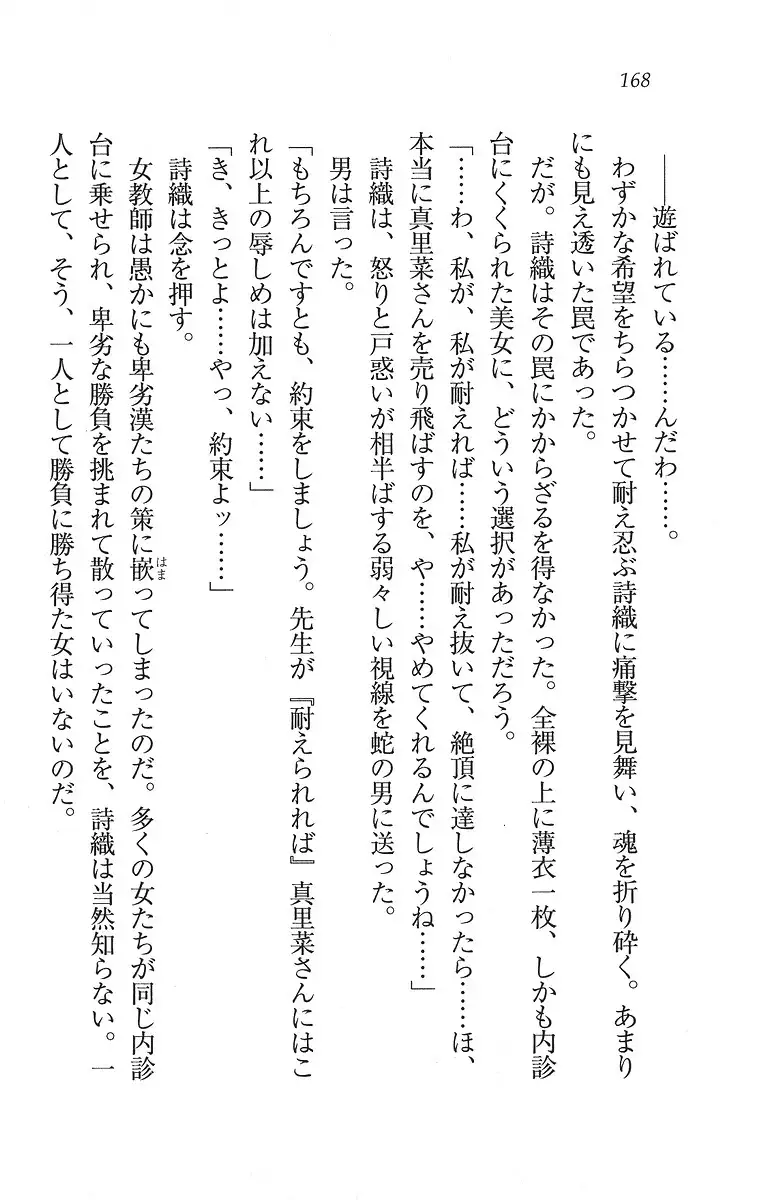 168
――遊ばれている……んだわ……。
わずかな希望をちらつかせて耐え忍ぶ詩織に痛撃を見舞い、魂を折り砕く。あまり
にも見え透いた罠であった。
だが。詩織はその罠にかからざるを得なかった。全裸の上に薄衣一枚、しかも内診
台にくくられた美女に、どういう選択があっただろう。
「……わ、私が、私が耐えれば……私が耐え抜いて、絶頂に達しなかったら……ほ、
本当に真里菜さんを売り飛ばすのを、や……やめてくれるんでしょうね……」
詩織は、怒りと戸惑いが相半ばする弱々しい視線を蛇の男に送った。
男は言った。
「もちろんですとも、約束をしましょう。先生が『耐えられれば』真里菜さんにはこ
れ以上の辱しめは加えない……」
「き、きっとよ……やっ、約束よッ……」
詩織は念を押す。
女教師は愚かにも卑劣漢たちの策に嵌はまってしまったのだ。多くの女たちが同じ内診
台に乗せられ、卑劣な勝負を挑まれて散っていったことを、詩織は当然知らない。一
人として、そう、一人として勝負に勝ち得た女はいないのだ。